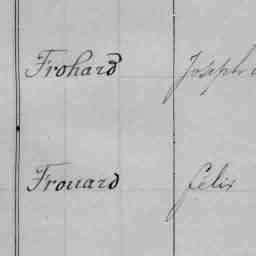 Frohard Joseph
Frouard félix